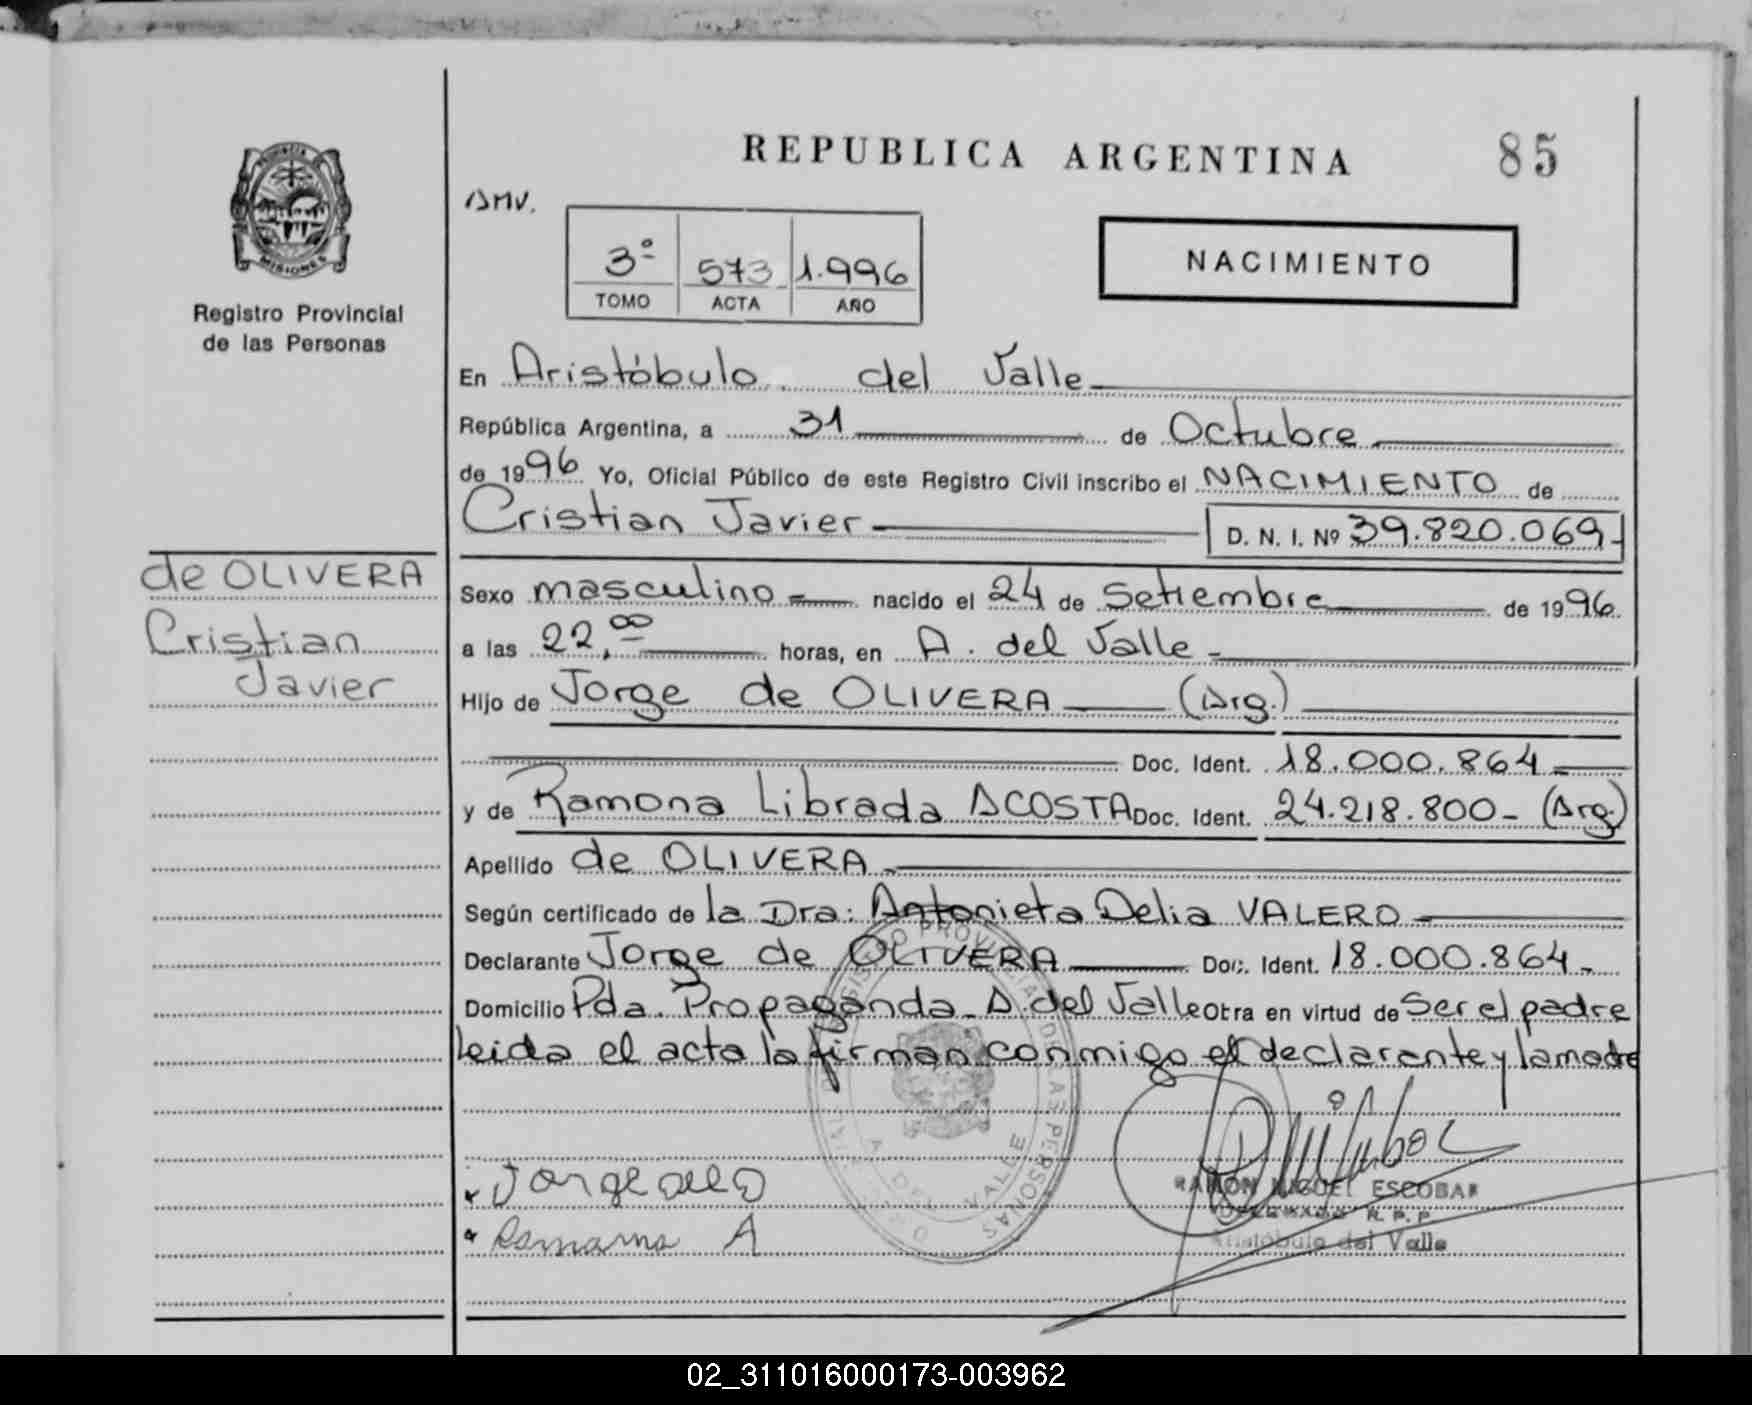 REPUBLICA ARGENTINA
85
PROVINCIA DE
MISIONES
Registro Provincial
de las Personas
AMV.
3º
573
1.996
TOMO
ACTA
AÑO
NACIMIENTO
En Aristóbulo del Valle
República Argentina, a 31 de Octubre
de 1996 Yo, Oficial Público de este Registro Civil inscribo el NACIMIENTO de
Cristian Javier D. N. I. Nº 39.820.069-
de OLIVERA
Cristian
Javier
Sexo masculino nacido el 24 de Setiembre de 1996.
a las 22,00 horas, en A. del Valle
Hijo de Jorge de OLIVERA (Arg.)
Doc. Ident. 18.000.864
y de Ramona Librada ACOSTA Doc. Ident. 24.218.800- (Arg.)
Apellido de OLIVERA
Según certificado de la Dra: Antonieta Delia VALERO
Declarante Jorge de OLIVERA Doc. Ident. 18.000.864-
Domicilio Pda. Propaganda- A. del Valle Obra en virtud de Ser el padre
Leida el acta la firman conmigo el declarante y la madre
REGISTRO PROVINCIAL DE LAS PERSONAS
A. DEL VALLE
Ramona A
RAMON MIGUEL ESCOBAR
DELEGADO R.P.P.
Aristóbulo del Valle
02_311016000173-003962